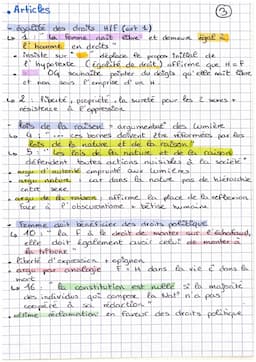 • Articles
③
- égalité des droits H/F (art 1)
↳ 1 : " la femme naît libre et demeure égal à
l'homme en droits "
• insiste sur " " déplace le propos initial de
l'hypotexte (égalité de droit) affirme que H = F
• OG souhaite pointer du doigts qu'elle naît libre
et non sous l'emprise d'un H
↳ 2 : liberté, propriété, la sureté pour les 2 sexes +
résistance à l'oppression
- lois de la raison : argumentaire des Lumière
↳ 4 : " ces bornes doivent être réformées par les
lois de la nature et de la raison "
↳ 5 : " les lois de la nature et de la raison
défendent toutes actions nuisibles à la société "
• argu d'autorité emprunté aux lumières
• argu nature : car dans la nature pas de hiérarchie
entre sexe
• argu de la raison : affirme la place de la reflexion
face à l'obscurantisme + bêtise humaine
- Femme doit bénéficier des droits politique
↳ 10 : " la F a le droit de monter sur l'échafaud,
elle doit également avoir celui de monter à
la tribune "
• liberté d'expression + opignon
• argu par analogie : F = H dans la vie & dans la
mort
↳ 16 : " la constitution est nulle si la majorité
des individus qui compose la Nat° n'a pas
coopéré à sa rédaction "
• ultime réclamation en faveur des droits politique